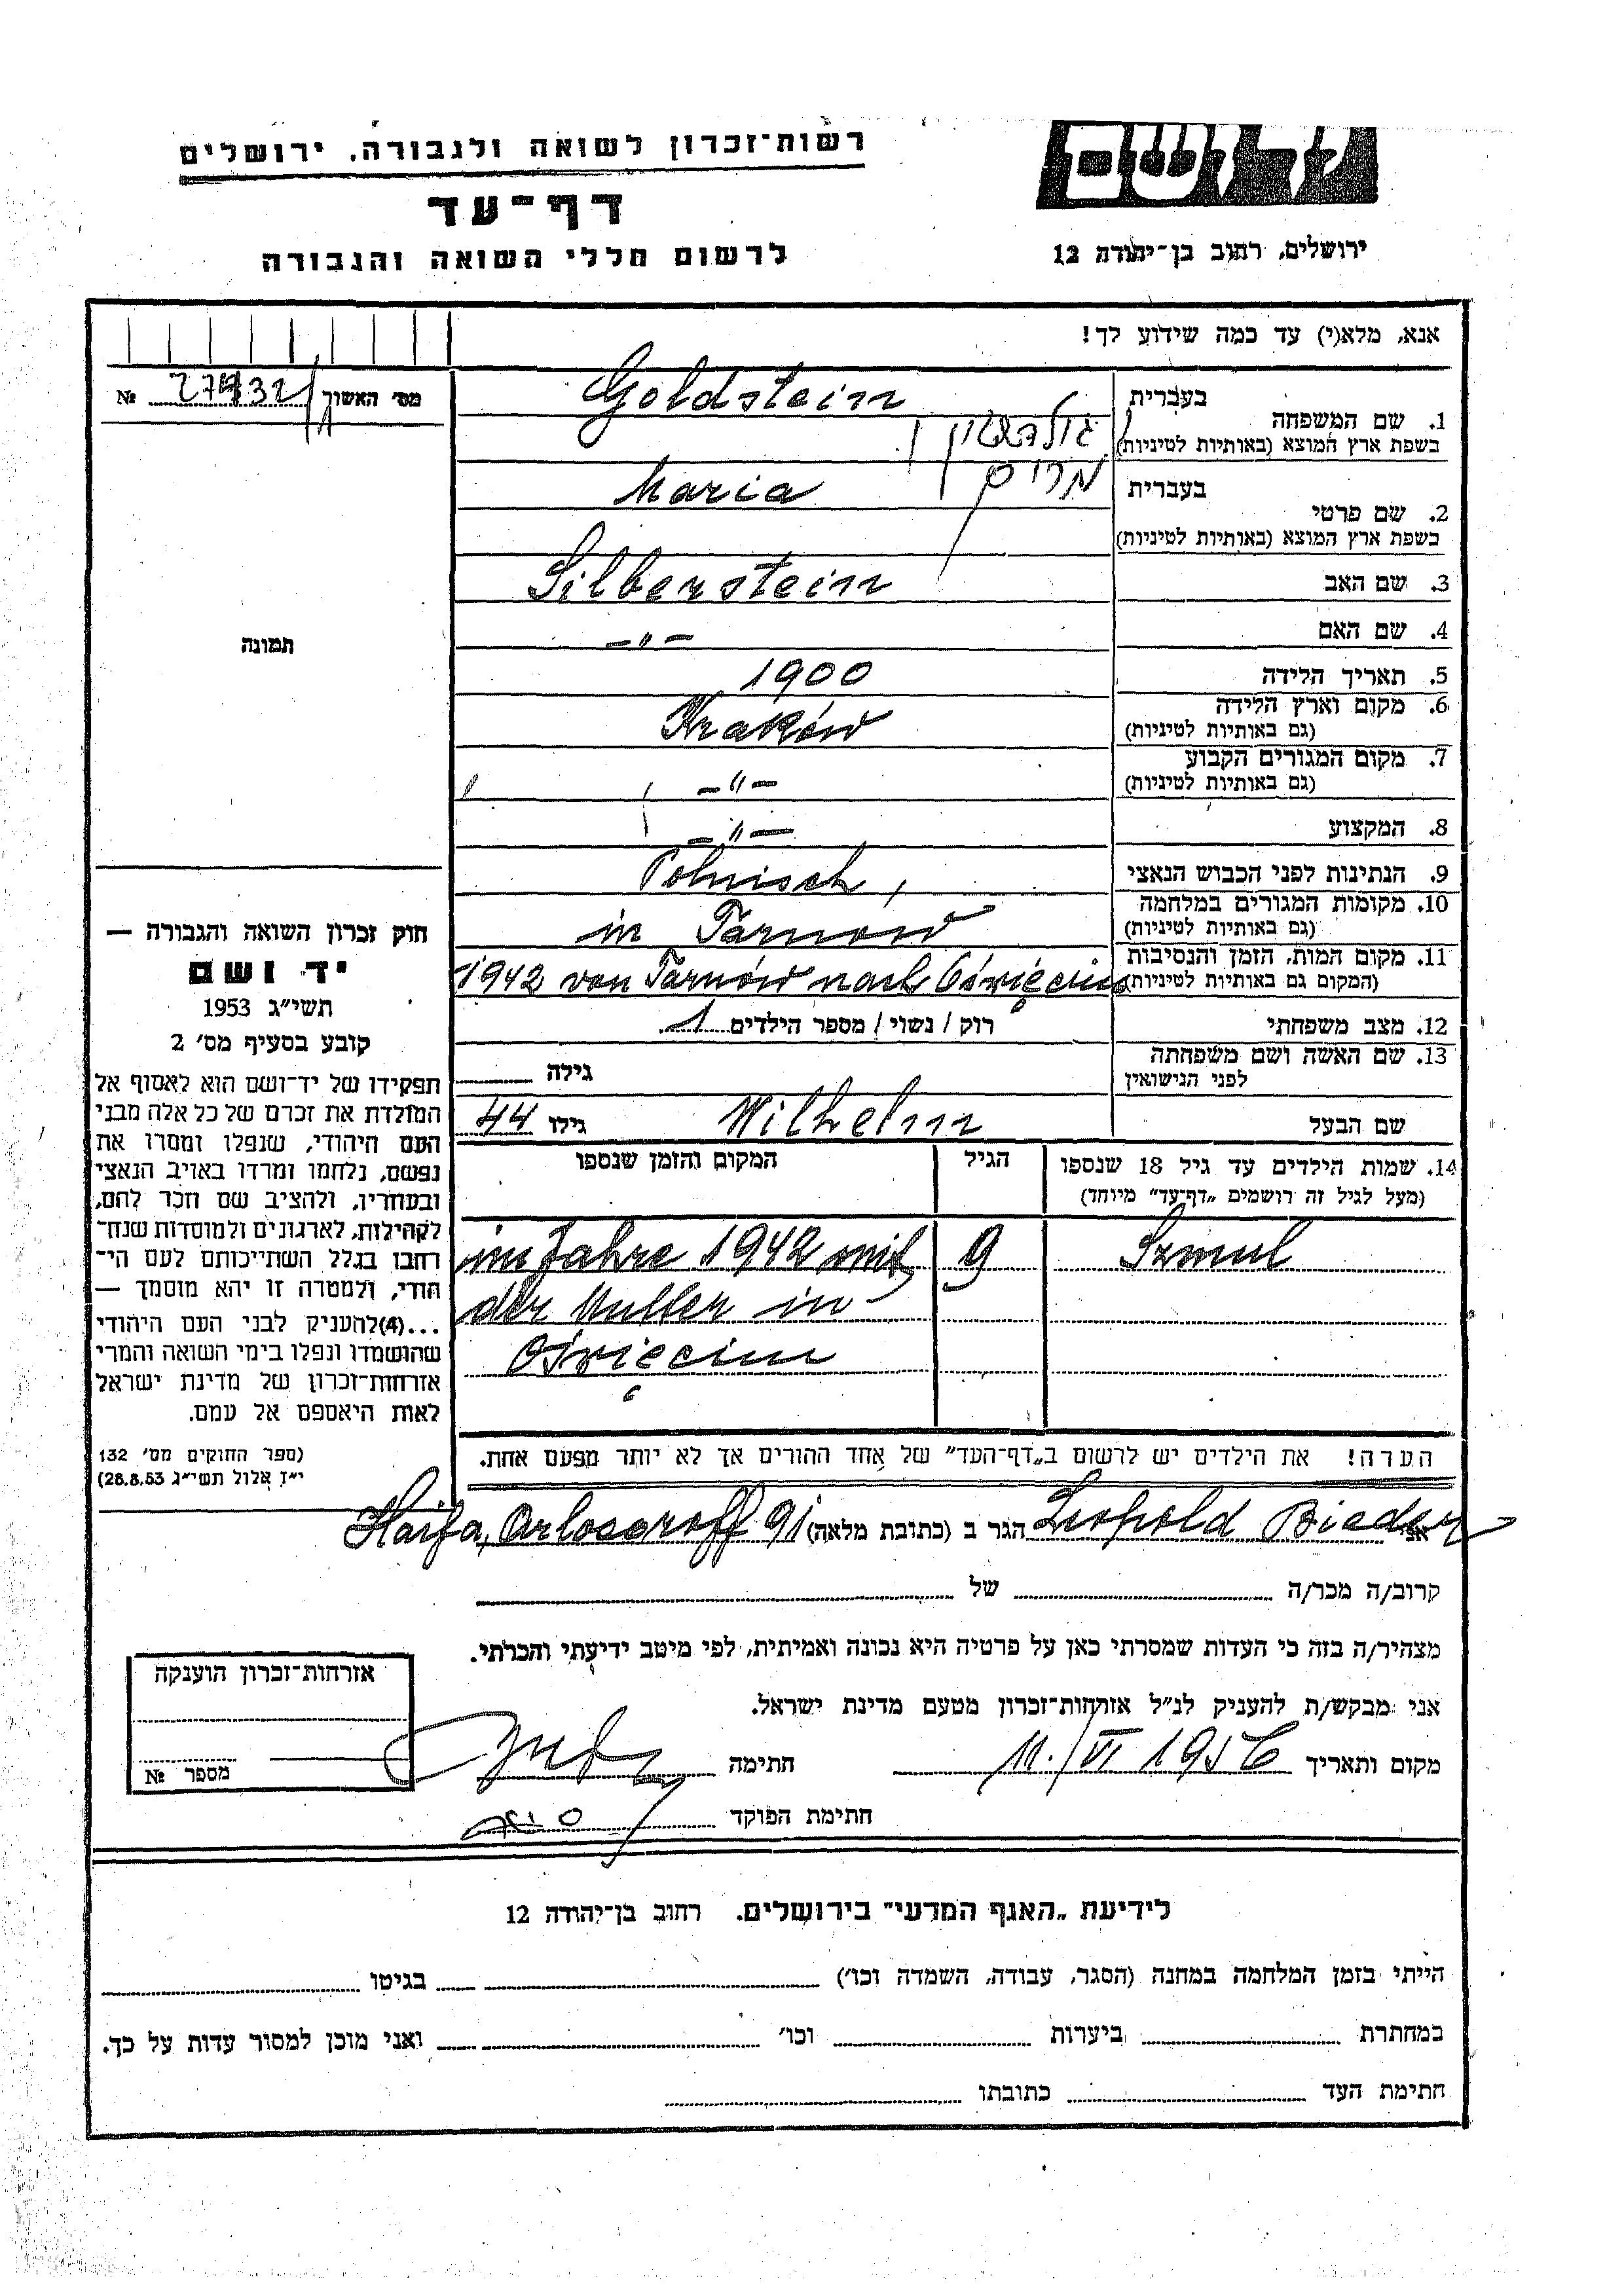 רשות־זכרון לשואה ולגבורה, ירושלים
דף־עד
לרשום חללי השואה והגבורה
ירושלים, רחוב בן־יהודה 12
אנא, מלא(י) עד כמה שידוע לך!
מס׳ האשוך №
1. שם המשפחה
בעברית Goldstein
בשפת ארץ המוצא (באותיות לטיניות) גולדשטין
2. שם פרטי
בעברית Maria מרים
בשפת ארץ המוצא (באותיות לטיניות)
3. שם האב Silberstein
4. שם האם – " –
5. תאריך הלידה 1900
6. מקום וארץ הלידה Kraków
(גם באותיות לטיניות)
7. מקום המגורים הקבוע – " –
(גם באותיות לטיניות)
8. המקצוע – " –
9. הנתינות לפני הכבוש הנאצי Polnisch,
10. מקומות המגורים במלחמה in Tarnow
(גם באותיות לטיניות)
11. מקום המות, הזמן והנסיבות 1942 von Tarnów nach Oświęcim
(המקום גם באותיות לטיניות)
12. מצב משפחתי רוק / נשוי / מספר הילדים 1
13. שם האשה ושם משפחתה גילה
לפני הנישואין
שם הבעל Wilhelm גילו 44
14. שמות הילדים עד גיל 18 שנספו הגיל המקום והזמן שנספו
(מעל לגיל זה רושמים „דף־עד" מיוחד)
Szmul 9 im Jahre 1942 mit
der Mutter in
Oświęcim
תמונה
חוק זכרון השואה והגבורה —
יד ושם
תשי״ג 1953
קובע בסעיף מס׳ 2
תפקידו של יד־ושם הוא לאסוף אל
המולדת את זכרם של כל אלה מבני
העם היהודי, שנפלו ומסרו את
נפשם, נלחמו ומרדו באויב הנאצי
ובעוזריו, ולהציב שם וזכר להם,
לקהילות, לארגונים ולמוסדות שנח־
רחבו בגלל השתייכותם לעם הי־
הודי, ולמטרה זו יהא מוסמך —
...(4)להעניק לבני העם היהודי
שהושמדו ונפלו בימי השואה והמרי
אזרחות־זכרון של מדינת ישראל
לאות היאספם אל עמם.
(ספר החוקים מס׳ 132
י״ז אלול תשי״ג 28.8.53)
הערה! את הילדים יש לרשום ב„דף־העד" של אחד ההורים אך לא יותר מפעם אחת.
אני Leopold Bieder הגר ב (כתובת מלאה) Haifa, Orlosoroff 91
קרוב/ה מכר/ה של
מצהיר/ה בזה כי העדות שמסרתי כאן על פרטיה היא נכונה ואמיתית, לפי מיטב ידיעתי והכרתי.
אני מבקש/ת להעניק לנ״ל אזרחות־זכרון מטעם מדינת ישראל.
מקום ותאריך 11. VI 1956 חתימה
חתימת הפוקד
אזרחות־זכרון הוענקה
מספר №
לידיעת „האגף המדעי" בירושלים. רחוב בן־יהודה 12
הייתי בזמן המלחמה במחנה (הסגר, עבודה, השמדה וכו׳) בגיטו
במחתרת ביערות וכו׳ ואני מוכן למסור עדות על כך.
חתימת העד כתובתו